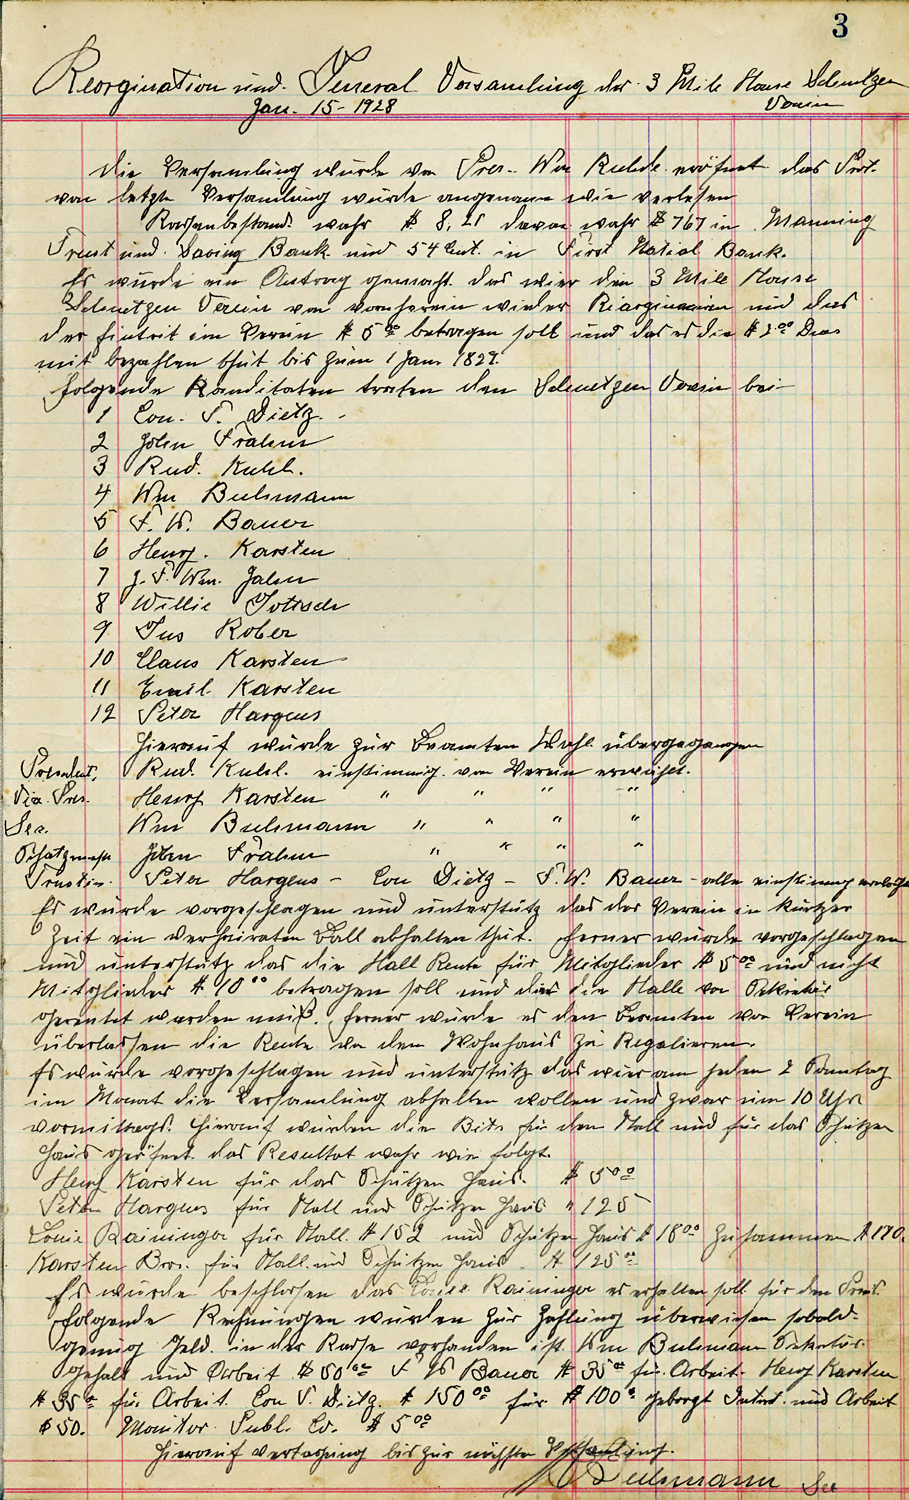 3
Reorgination und General Versamlung der 3 Mile House Schuetzen
Verein
Jan. 15 - 1928
die Versamlung wurde von Pres. Wm Kuhde eröfnet das Prot.
von letzte Versamlung wurde angenom wie verlesen
Kassenbestand wahr $ 8,21 davon wahr $ 767 in Manning
Trust und Saving Bank und 54 Cent. in First Natial Bank.
Es wurde ein Antrag gemacht das wier den 3 Mile House
Schuetzen Verein von vornherein wieder und das
der Eintrit im Verein $ 5 00 betragen soll und das es die $ 2 00 Dues
mit bezahlen thut bis zum 1 Jan. 1829.
folgende Kanditaten traten den Schuetzen Verein bei
1 Lou. P. Dietz.
2 John Frahm
3 Rud. Kuhl.
4 Wm Buhmann
5 F. W. Bauer
6 Henry. Karsten
7 J. F. Wm. Jahn
8 Willie Gottsch
9 Gus Rober
10 Claus Karsten
11 Emil Karsten
12 Peter Hargens
hierauf wurde zur Beamten Wahl übergegangen
President, Rud. Kuhl. einstimmig von Verein erwählt.
Vice Pres. Henry Karsten " " " "
Sec. Wm Buhmann " " " "
Schatzmeister John Frahm " " " "
Trustees. Peter Hargens - Lou Dietz - F. W. Bauer - alle einstimmig erwählt
Es wurde vorgeschlagen und unterstütz das der Verein in kurtzer
Zeit ein verheiraten Ball abhalten thut. ferner wurde vorgeschlagen
und unterstütz das die Hall Rente für Mitglieder $ 5 00 und nicht
Mitglieder $ 10 00 betragen soll und das die Halle von Sekretär
gerentet werden muß. ferner wurde es den Beamten von Verein
überlassen die Rente von dem Wohnhaus zu Regulieren.
Es wurde vorgeschlagen und unterstütz das wier am jeden 2 Sonntag
im Monat die Versamlung abhalten wollen und zwar um 10 Uhr
vormittags. hierauf wurden die Bits für den Stall und für das Schützen
haus geöfnet. das Resultat wahr wie folgt.
Henry Karsten für das Schützen haus. $ 5 00
Peter Hargens für Stall und Schützen haus " 125
Louie Raininger für Stall. $ 152 und Schützen haus $ 18 00 zusammen $ 170.
Karsten Bros. für Stall und Schützen haus. $ 125 00
Es wurde beschlossen das Louie Raininger es erhalten soll für den Preis.
folgende Rechnungen wurden zur Zahlung überwiesen sobald
genug Geld in der Kasse vorhanden ist. Wm Buhmann Sekretär
Gehalt und Arbeit $ 50 00 F W Bauer $ 35 00 für Arbeit. Henry Karsten
$ 35 00 für Arbeit. Lou P. Dietz. $ 150 00 für $ 100 00 geborgt Intrst. und Arbeit
$ 50. Monitor Publ. Co. $ 5 00
hierauf vertagung bis zur nächsten Versamlung.
Wm Buhmann Sec